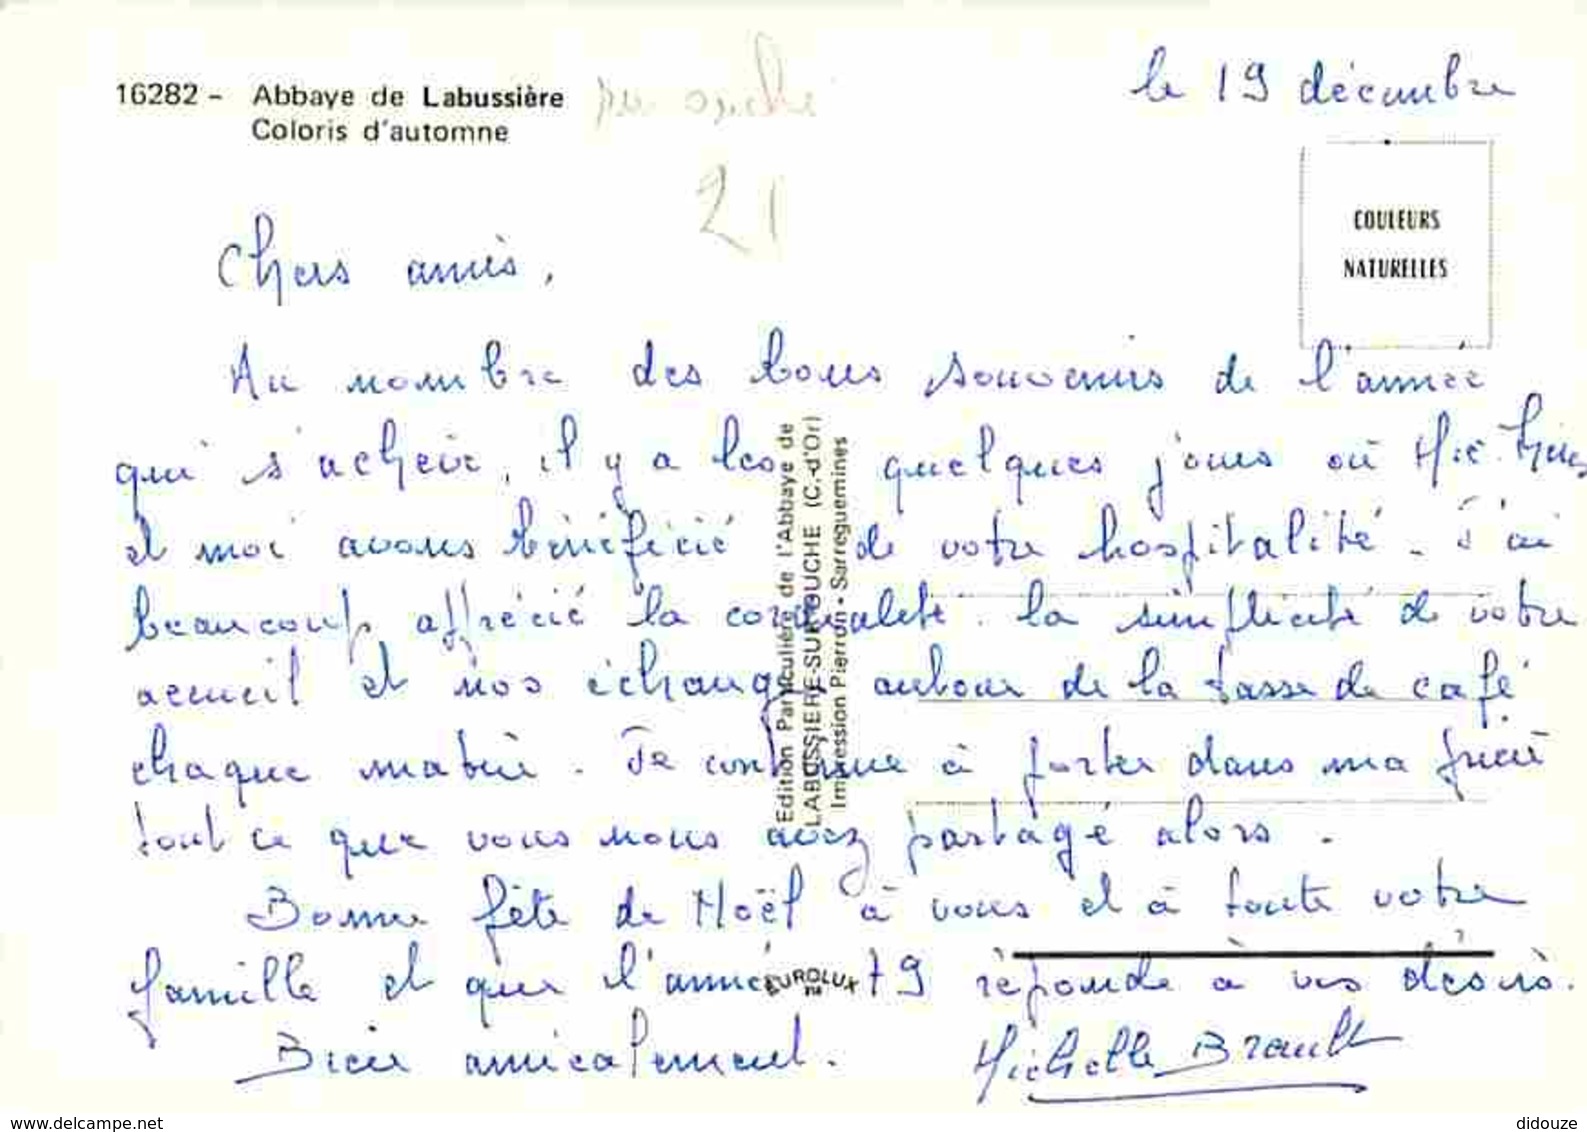 16282 - Abbaye de Labussière
Coloris d'automne
21
le 19 décembre
COULEURS
NATURELLES
Chers amis,
Au nombre des bons souvenirs de l'année
qui s'achève, il y a les quelques jours où
et moi avons bénéficié de votre hospitalité. J'ai
beaucoup apprécié la cordialité. la simplicité de votre
accueil et nos échanges autour de la tasse de café
chaque matin. Je continue à porter dans ma prière
tout ce que vous nous avez partagé alors.
Bonne fête de Noël à vous et à toute votre
famille et que l'année 79 réponde à vos désirs.
Bien amicalement. Michelle Brault
Edition Particulière de l'Abbaye de
LABUSSIERE-SUR-OUCHE (C.-d'Or)
Impression Pierron - Sarreguemines
EUROLUX
www.delcampe.net
didouze